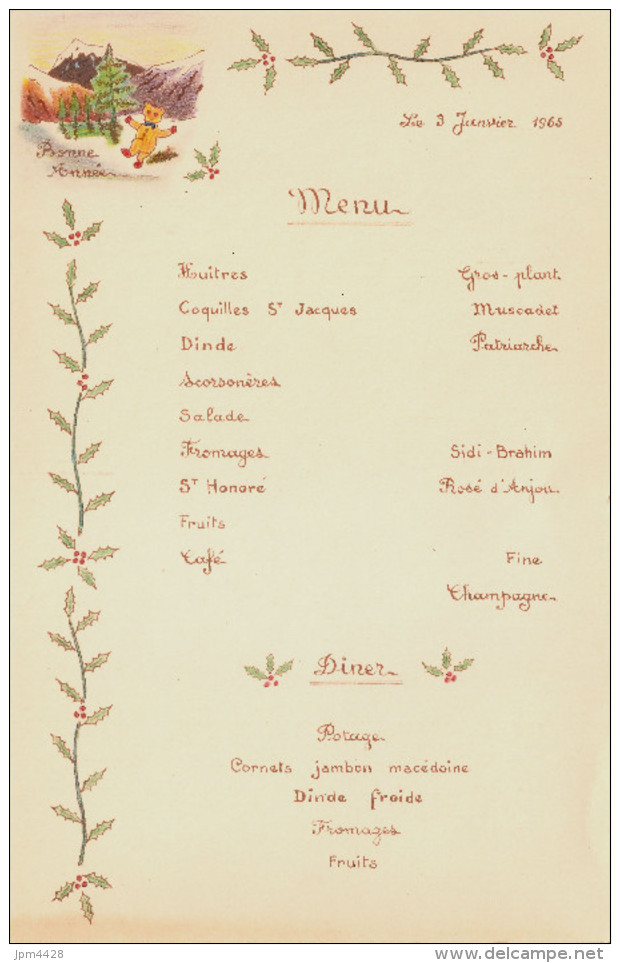 Bonne
Année
Le 3 Janvier 1965
Menu
Huîtres Gros-plant
Coquilles St Jacques Muscadet
Dinde Patriarche
Scorsonères
Salade
Fromages Sidi-Brahim
St Honoré Rosé d'Anjou
Fruits
Café Fine
Champagne
Dîner
Potage
Cornets jambon macédoine
Dinde froide
Fromages
Fruits
jpm4428
delcampe.net